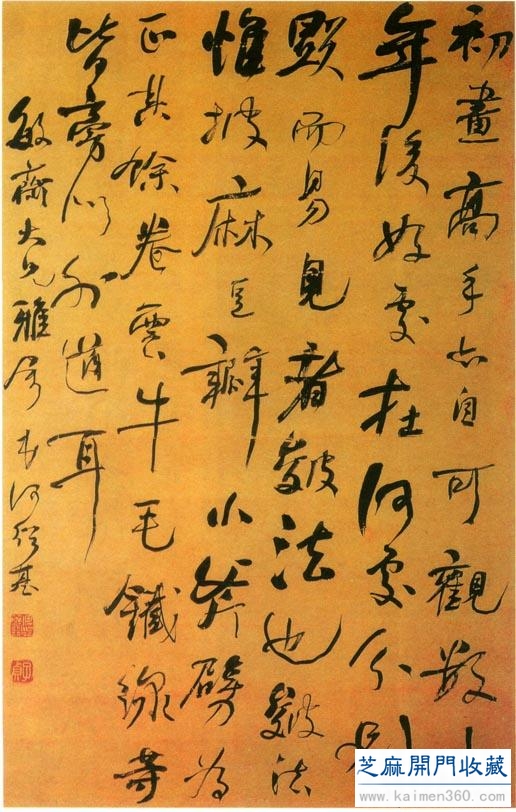 初畫高手亦自可觀數十
年後好處在何處分別
顯而易見者皴法也皴法
惟披麻豆瓣小斧劈為
正其餘卷雲牛毛鐵線等
皆旁門外道耳
敏齋大兄雅屬弟何紹基
芝麻開門收藏
www.kaimen360.com